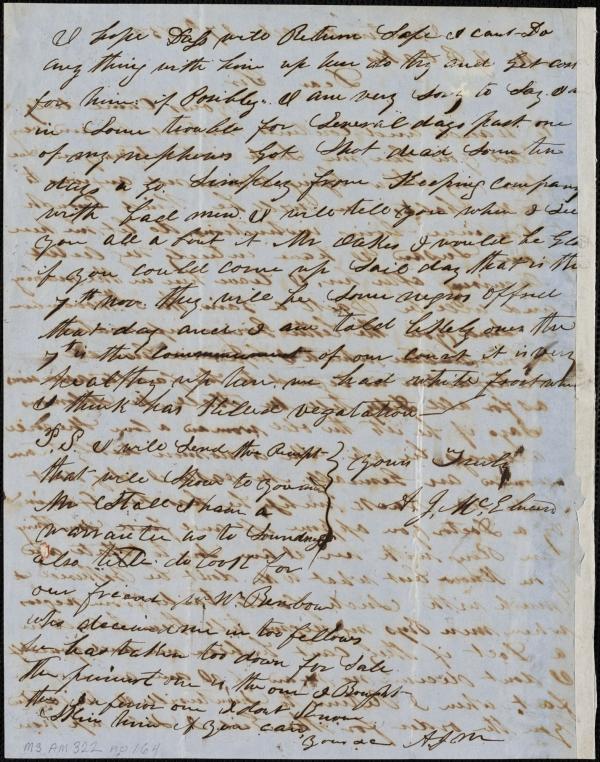 I hope Dass will Return Safe I cant Do
any thing with him up her do try and Get
for him if Possbly. I am very Sorry to Say I
in Some trouble for Several days past one
of my nephews Got Shot dead Some ten
days a go Simpley from Keeping Company
with bad men I will tell you when I See
you all a bout it Mr Oakes I would be Gla
if you could Come up Said day that is the
7th nov. they will be Some negros Offred
that day and I am told likely ones the
7th is the of our court it is very
healthy up her we had white frost
I think has Killed vegatation
P.S. I will Send the Recpt
that will Show to you
Mr I have a
warrantee as to Soundness
also title do look for
our friend Mr Wm Benbow
who deceived me in too fellows
he has taken too down for Sale
the one is the one I Bought
the one I dont Know
Skin him if you can
yours &c A J M
Yours Truly
A. J. McElveen
MS AM 322 no 164